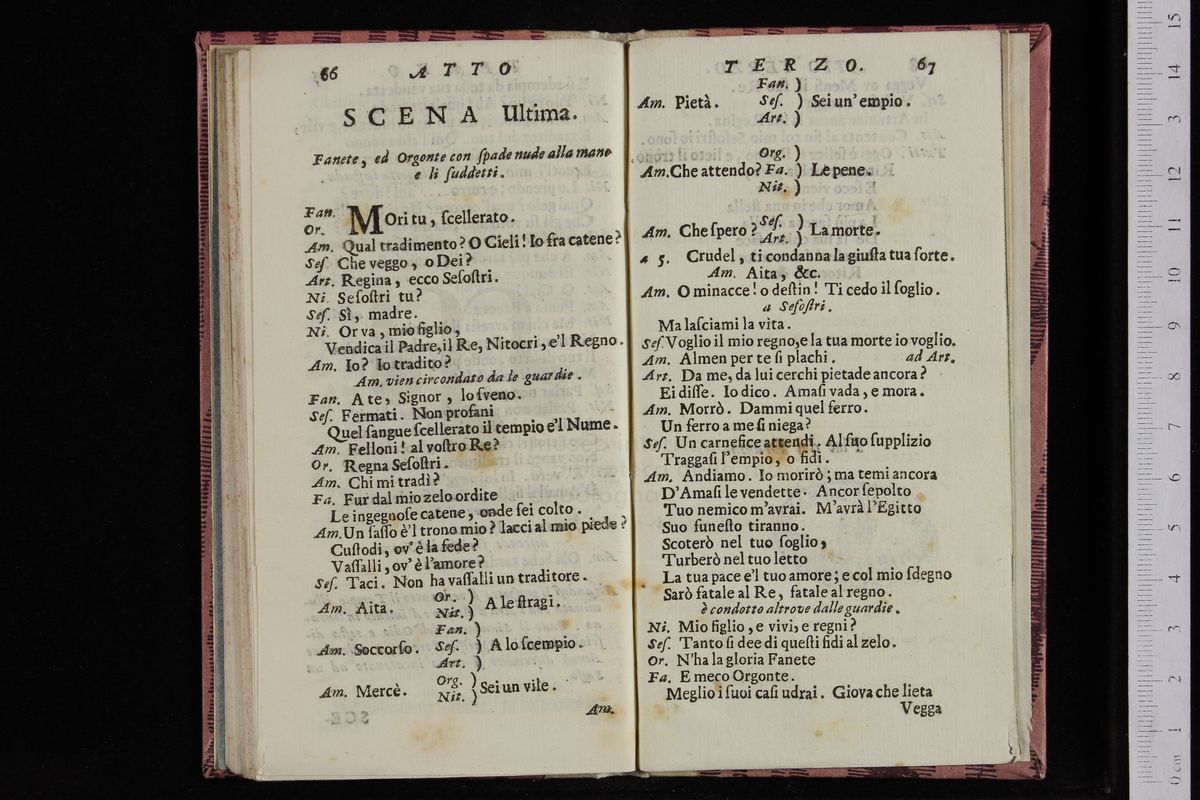 66 ATTO
SCENA Ultima.
Fanete, ed Orgonte con ſpade nude alla mano
e li ſuddetti.
Fan.
Or. MOri tu, ſcellerato.
Am. Qual tradimento? O Cieli! Io fra catene?
Seſ. Che veggo, o Dei?
Art. Regina, ecco Seſoſtri.
Ni. Seſoſtri tu?
Seſ. Sì, madre.
Ni. Or va, mio figlio,
Vendica il Padre, il Re, Nitocri, e'l Regno.
Am. Io? Io tradito?
Am. vien circondato da le guardie.
Fan. A te, Signor, lo ſveno.
Seſ. Fermati. Non profani
Quel ſangue ſcellerato il tempio e'l Nume.
Am. Felloni! al voſtro Re?
Or. Regna Seſoſtri.
Am. Chi mi tradì?
Fa. Fur dal mio zelo ordite
Le ingegnoſe catene, onde ſei colto.
Am. Un ſaſſo è'l trono mio? lacci al mio piede?
Cuſtodi, ov'è la fede?
Vaſſalli, ov'è l'amore?
Seſ. Taci. Non ha vaſſalli un traditore.
Am. Aita. Or. ) A le ſtragi.
Nit. )
Fan. )
Am. Soccorſo. Seſ. ) A lo ſcempio.
Art. )
Am. Mercè. Org. ) Sei un vile.
Nit. )
Am.
SCE-
TERZO. 67
Fan. )
Am. Pietà. Seſ. ) Sei un'empio.
Art. )
Org. )
Am. Che attendo? Fa. ) Le pene.
Nit. )
Am. Che ſpero? Seſ. ) La morte.
Art. )
a 5. Crudel, ti condanna la giuſta tua ſorte.
Am. Aita, &c.
Am. O minacce! o deſtin! Ti cedo il ſoglio.
a Seſoſtri.
Ma laſciami la vita.
Seſ. Voglio il mio regno, e la tua morte io voglio.
Am. Almen per te ſi plachi. ad Art.
Art. Da me, da lui cerchi pietade ancora?
Ei diſſe. Io dico. Amaſi vada, e mora.
Am. Morrò. Dammi quel ferro.
Un ferro a me ſi niega?
Seſ. Un carnefice attendi. Al ſuo ſupplizio
Traggaſi l'empio, o fidi.
Am. Andiamo. Io morirò; ma temi ancora
D'Amaſi le vendette. Ancor ſepolto
Tuo nemico m'avrai. M'avrà l'Egitto
Suo funeſto tiranno.
Scoterò nel tuo ſoglio,
Turberò nel tuo letto
La tua pace e'l tuo amore; e col mio ſdegno
Sarò fatale al Re, fatale al regno.
è condotto altrove dalle guardie.
Ni. Mio figlio, e vivi, e regni?
Seſ. Tanto ſi dee di queſti fidi al zelo.
Or. N'ha la gloria Fanete
Fa. E meco Orgonte.
Meglio i ſuoi caſi udrai. Giova che lieta
Vegga
0 cm 1 2 3 4 5 6 7 8 9 10 11 12 13 14 15